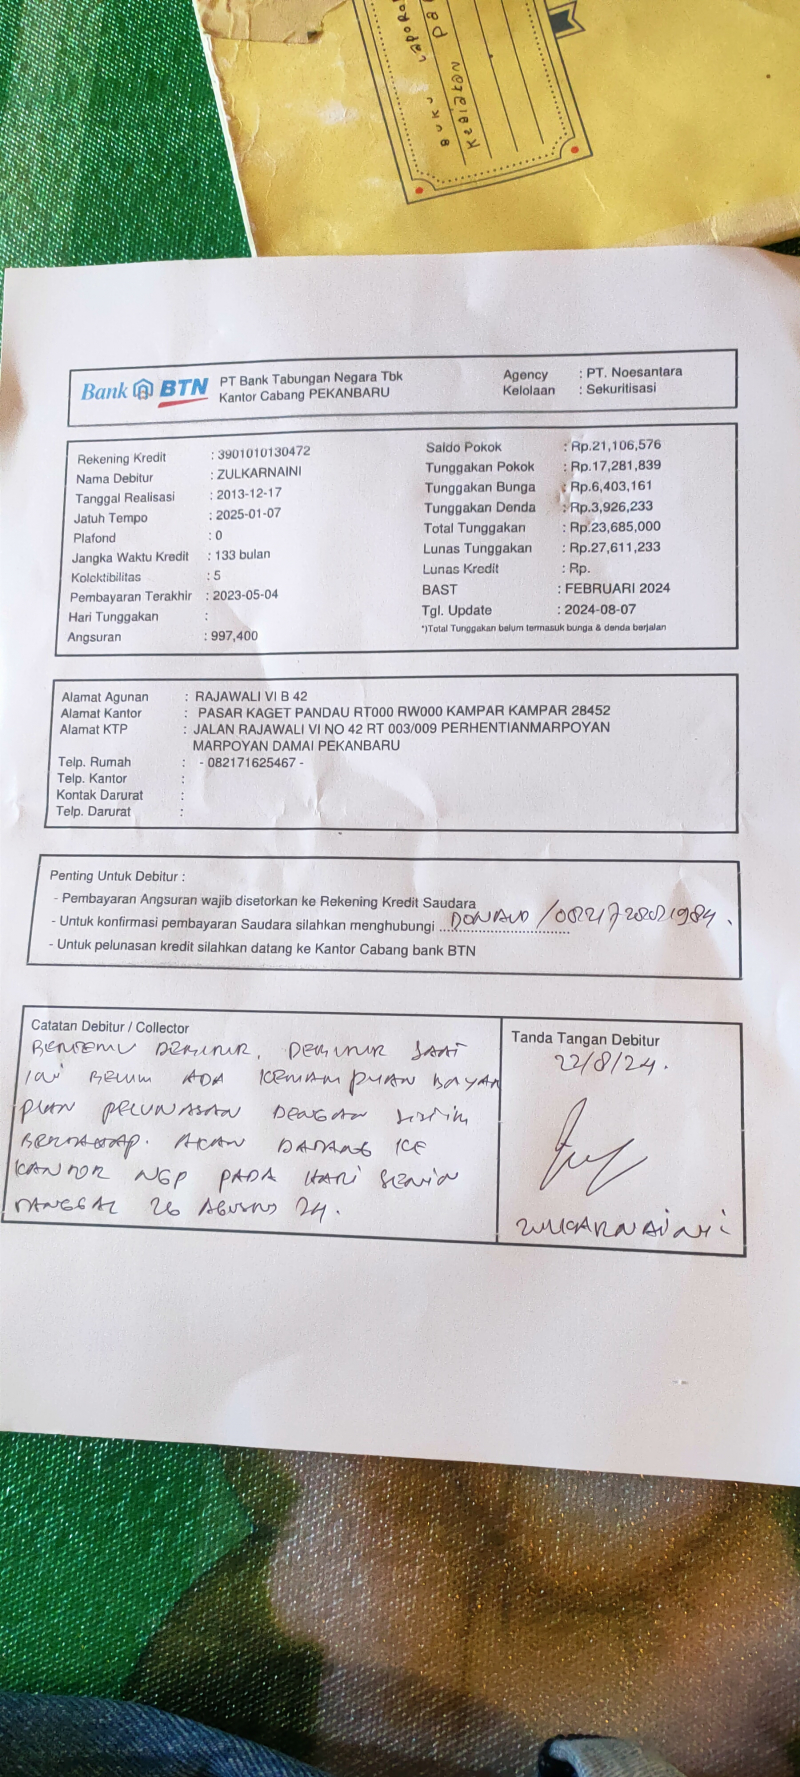 BUKU LAPORA
KEGIATAN PA
Bank BTN
PT Bank Tabungan Negara Tbk
Kantor Cabang PEKANBARU
Agency : PT. Noesantara
Kelolaan : Sekuritisasi
Rekening Kredit : 3901010130472
Nama Debitur : ZULKARNAINI
Tanggal Realisasi : 2013-12-17
Jatuh Tempo : 2025-01-07
Plafond : 0
Jangka Waktu Kredit : 133 bulan
Kolektibilitas : 5
Pembayaran Terakhir : 2023-05-04
Hari Tunggakan :
Angsuran : 997,400
Saldo Pokok : Rp.21,106,576
Tunggakan Pokok : Rp.17,281,839
Tunggakan Bunga : Rp.6,403,161
Tunggakan Denda : Rp.3,926,233
Total Tunggakan : Rp.23,685,000
Lunas Tunggakan : Rp.27,611,233
Lunas Kredit : Rp.
BAST : FEBRUARI 2024
Tgl. Update : 2024-08-07
*)Total Tunggakan belum termasuk bunga & denda berjalan
Alamat Agunan : RAJAWALI VI B 42
Alamat Kantor : PASAR KAGET PANDAU RT000 RW000 KAMPAR KAMPAR 28452
Alamat KTP : JALAN RAJAWALI VI NO 42 RT 003/009 PERHENTIANMARPOYAN
MARPOYAN DAMAI PEKANBARU
Telp. Rumah : - 082171625467 -
Telp. Kantor :
Kontak Darurat :
Telp. Darurat :
Penting Untuk Debitur :
- Pembayaran Angsuran wajib disetorkan ke Rekening Kredit Saudara
- Untuk konfirmasi pembayaran Saudara silahkan menghubungi DONALD /
- Untuk pelunasan kredit silahkan datang ke Kantor Cabang bank BTN
Catatan Debitur / Collector
BERTEMU DEBITUR. DEBITUR SAAT
INI BELUM ADA KEMAMPUAN BAYAR
PLAN PELUNASAN DENGAN SISTIM
BERTAHAP. AKAN DATANG KE
KANTOR NGP PADA HARI SENIN
TANGGAL 26 AGUSTUS 24.
Tanda Tangan Debitur
22/8/24.
ZULKARNAINI